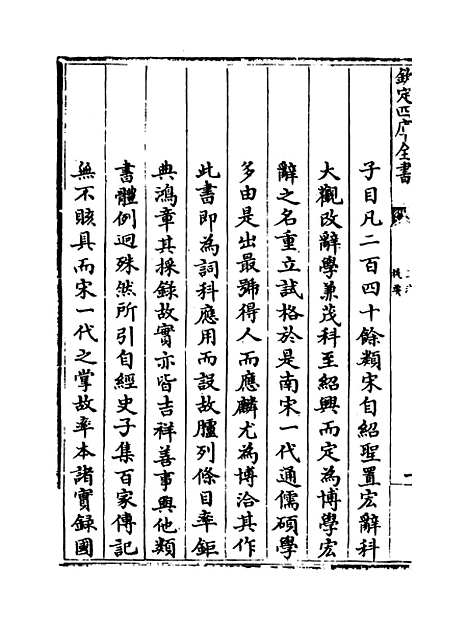 欽定四庫全書
提要
子目凡二百四十餘類宋自紹聖置宏辭科
大觀改辭學兼茂科至紹興而定為博學宏
辭之名重立試格於是南宋一代通儒碩學
多由是出最號得人而應麟尤為博洽其作
此書即為詞科應用而設故臚列條目率鉅
典鴻章其採錄故實亦皆吉祥善事與他類
書體例迥殊然所引自經史子集百家傳記
無不賅具而宋一代之掌故率本諸實録國